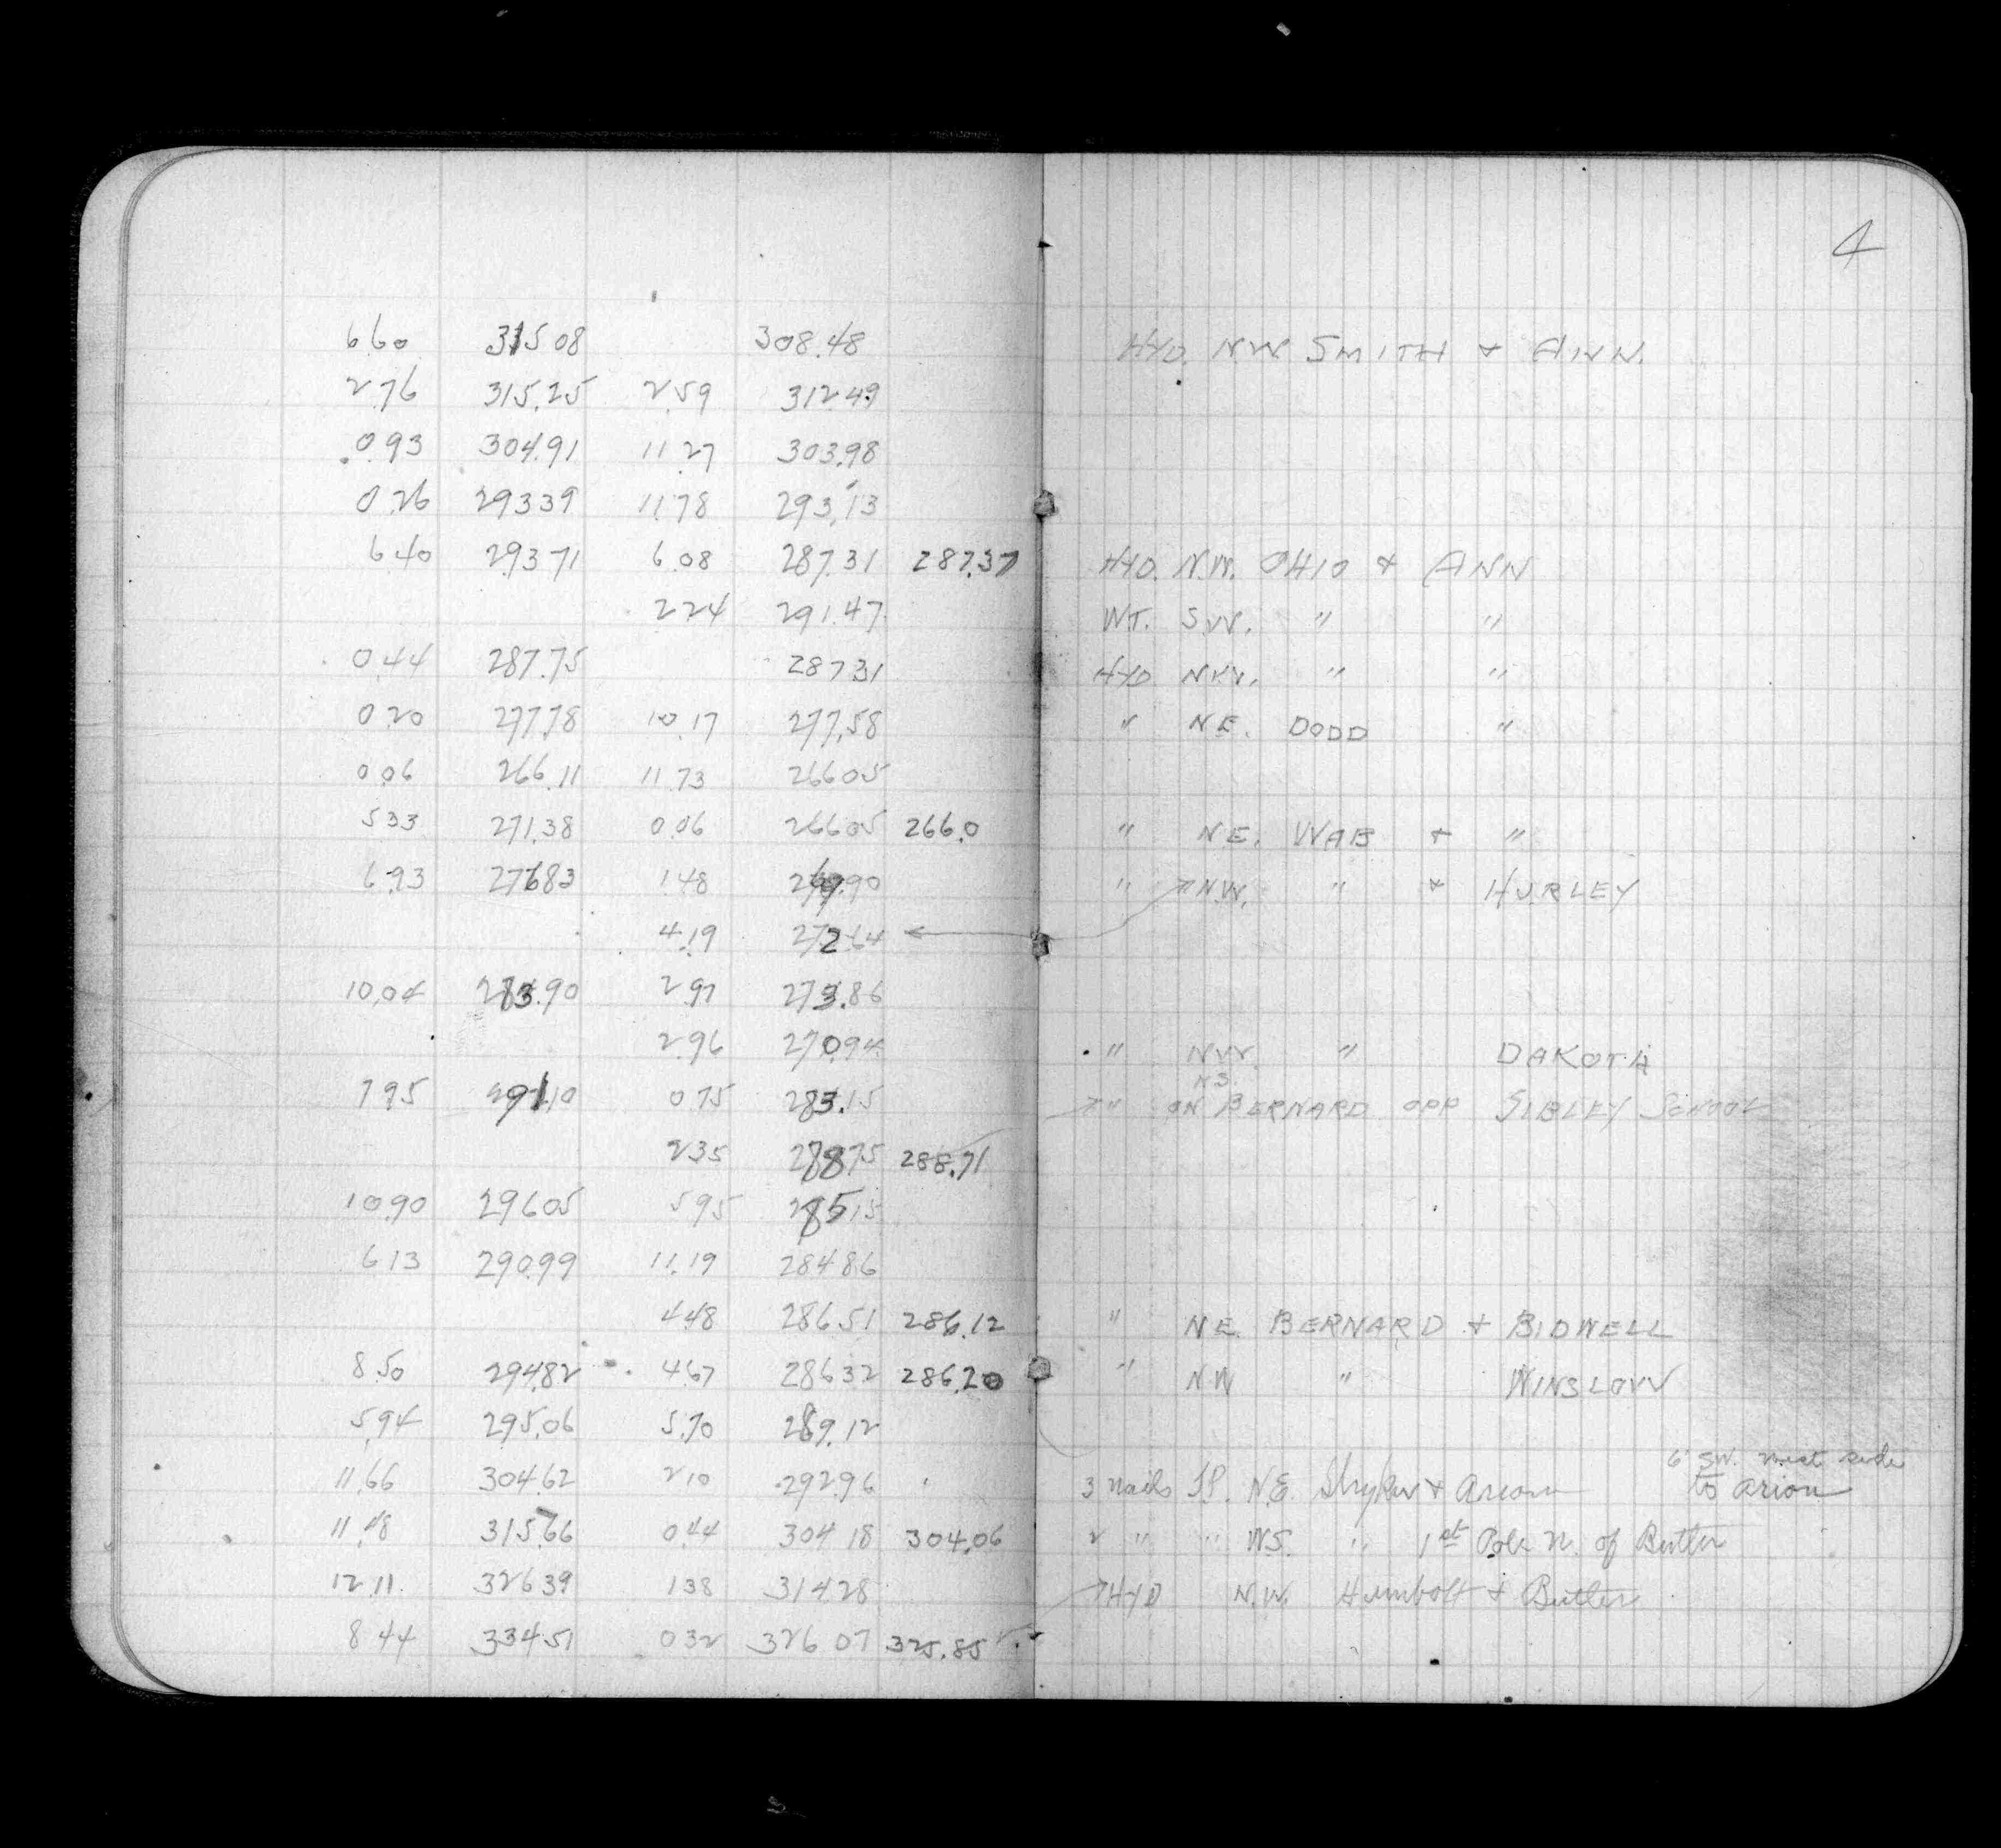 4
6.60 315.08 308.48 HYD. NW SMITH & ANN.
2.76 315.25 2.59 312.49
0.93 304.91 11.27 303.98
0.26 293.39 11.78 293.13
6.40 293.71 6.08 287.31 287.37 HYD. N.W. OHIO & ANN
2.24 291.47 WT. SW. " "
0.44 287.75 287.31 HYD NW. " "
0.20 277.78 10.17 277.58 " NE. DODD "
0.06 266.11 11.73 266.05
5.33 271.38 0.06 266.05 266.0 " NE. WAB & "
6.93 276.83 1.48 269.90 " N.W. " & HURLEY
4.19 272.64
10.04 283.90 2.97 273.86
2.96 270.94 " NW. " DAKOTA
7.95 291.10 0.75 283.15 " ON NS. BERNARD OPP SIBLEY SCHOOL
2.35 288.75 288.71
10.90 296.05 5.95 285.15
6.13 290.99 11.19 284.86
4.48 286.51 286.12 " NE BERNARD & BIDWELL
8.50 294.82 4.67 286.32 286.20 " NW " WINSLOW
5.94 295.06 5.70 289.12
6' SW. west side
11.66 304.62 2.10 292.96 3 nails TP. N.E. Stryker & Arion to Arion
11.48 315.66 0.44 304.18 304.06 2 " " W.S. " 1st Pole N. of Butler
12.11 326.39 1.38 314.28 HYD N.W. Humbolt & Butler
8.44 334.51 0.32 326.07 325.85